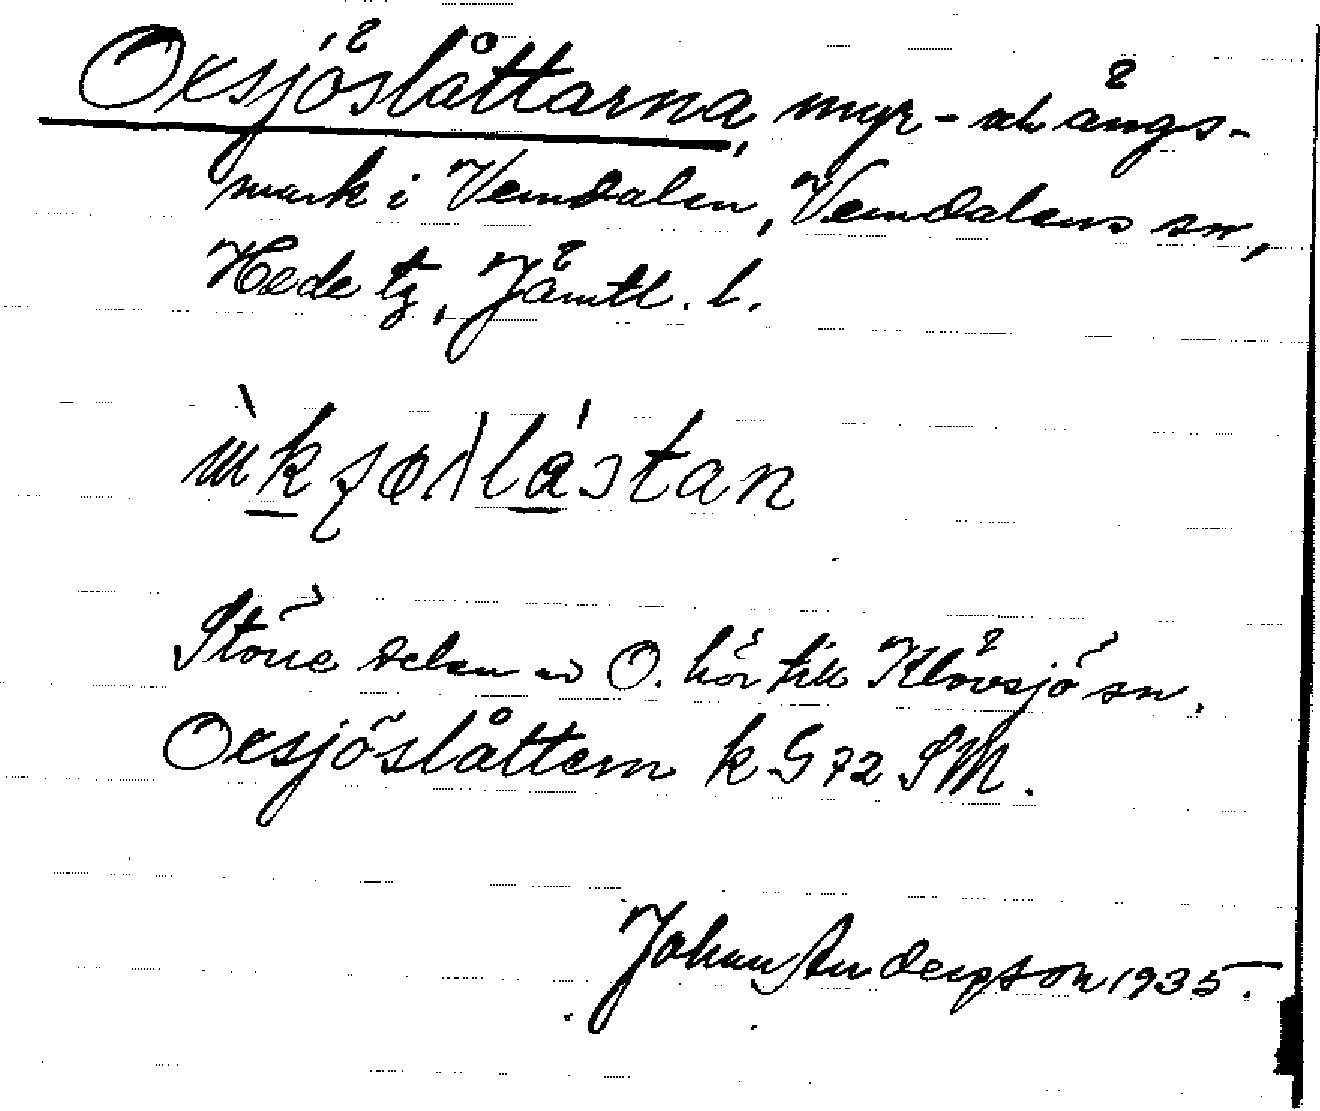 Oxsjöslåttarna, myr- och ängs-
mark i Vemdalen, Vemdalens sn,
Hede tg, Jämtl. l.
Större delen av O. hör till Klövsjö sn.
Oxsjöslåttern k G 72 SM.
Johan Anderpson 1935.